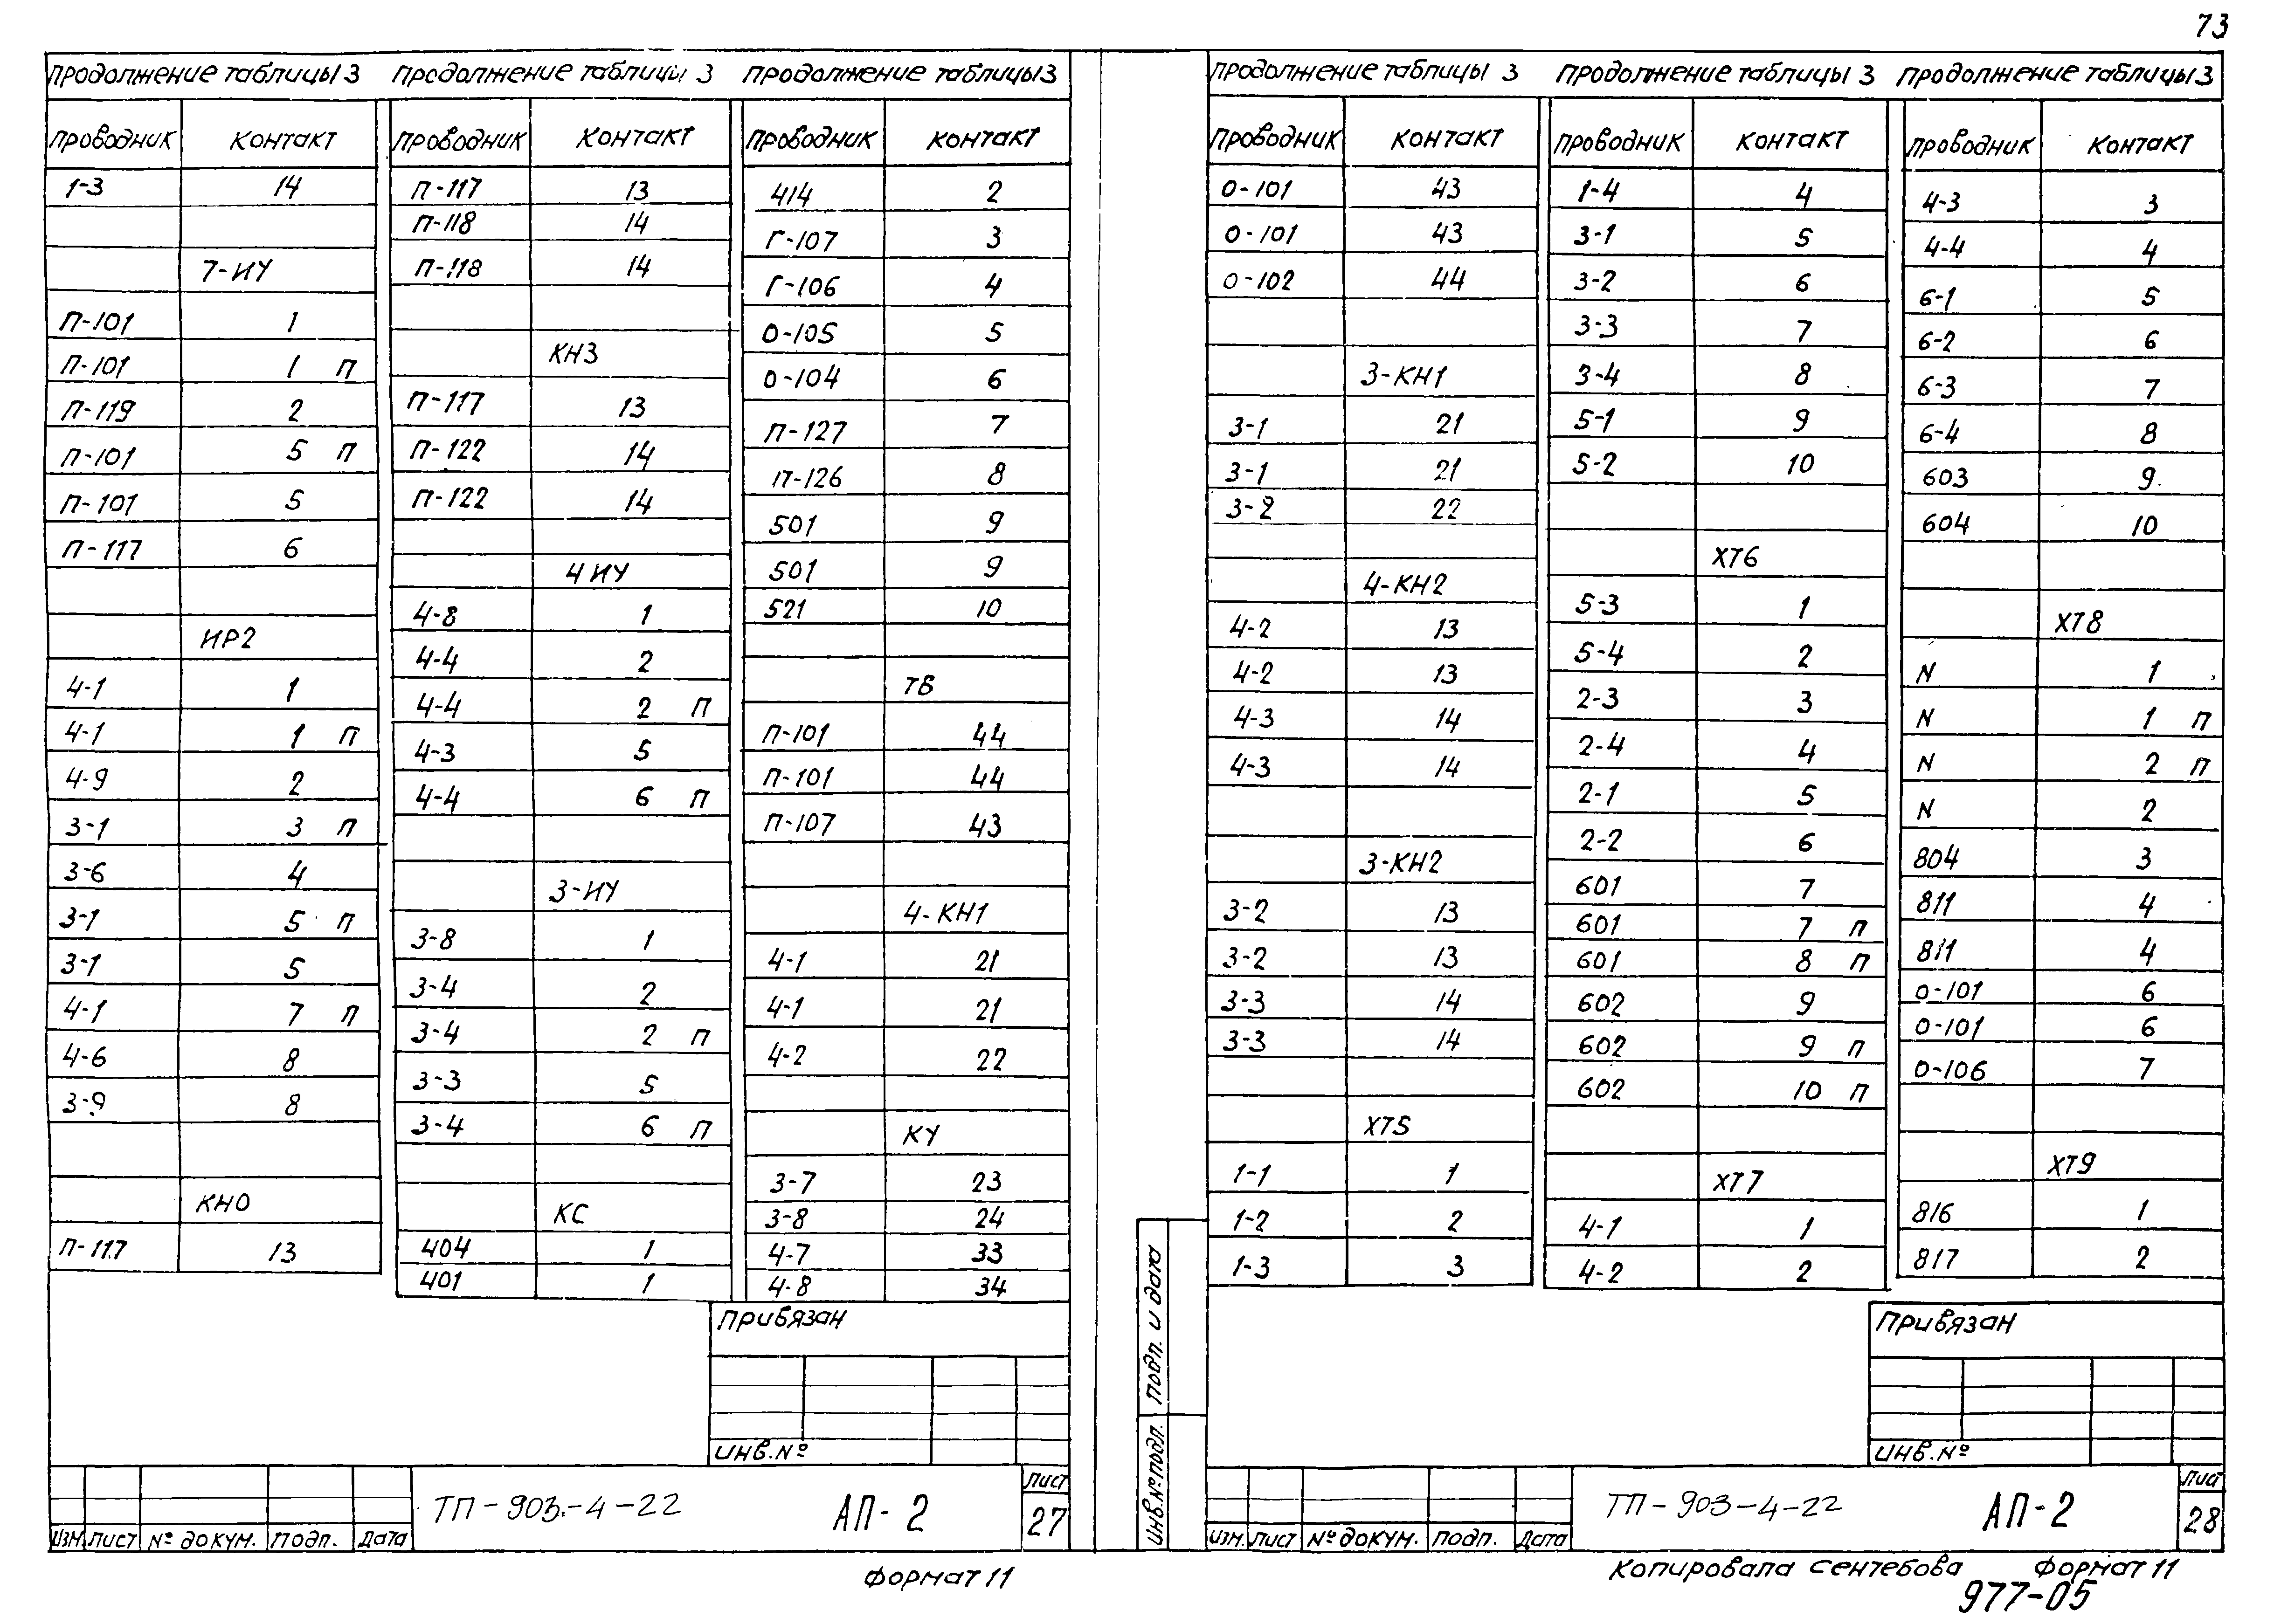 73
Продолжение таблицы 3
Проводник Контакт
1-3 14
7-ИУ
П-101 1
П-101 1 П
П-119 2
П-101 5 П
П-101 5
П-117 6
ИР2
4-1 1
4-1 1 П
4-9 2
3-1 3 П
3-6 4
3-1 5 П
3-1 5
4-1 7 П
4-6 8
3-9 8
КНО
П-117 13
Продолжение таблицы 3
Проводник Контакт
П-117 13
П-118 14
П-118 14
КН3
П-117 13
П-122 14
П-122 14
4ИУ
4-8 1
4-4 2
4-4 2 П
4-3 5
4-4 6 П
3-ИУ
3-8 1
3-4 2
3-4 2 П
3-3 5
3-4 6 П
КС
404 1
401 1
Продолжение таблицы 3
Проводник Контакт
414 2
Г-107 3
Г-106 4
О-105 5
О-104 6
П-127 7
П-126 8
501 9
501 9
521 10
ТВ
П-101 44
П-101 44
П-107 43
4-КН1
4-1 21
4-1 21
4-2 22
КУ
3-7 23
3-8 24
4-7 33
4-8 34
Привязан
Инв.№
Изм Лист № докум. Подп. Дата
ТП-903-4-22
АП-2
Лист
27
Формат 11
Продолжение таблицы 3
Проводник Контакт
О-101 43
О-101 43
О-102 44
3-КН1
3-1 21
3-1 21
3-2 22
4-КН2
4-2 13
4-2 13
4-3 14
4-3 14
3-КН2
3-2 13
3-2 13
3-3 14
3-3 14
ХТ5
1-1 1
1-2 2
1-3 3
Продолжение таблицы 3
Проводник Контакт
1-4 4
3-1 5
3-2 6
3-3 7
3-4 8
5-1 9
5-2 10
ХТ6
5-3 1
5-4 2
2-3 3
2-4 4
2-1 5
2-2 6
601 7
601 7 П
601 8 П
602 9
602 9 П
602 10 П
ХТ7
4-1 1
4-2 2
Продолжение таблицы 3
Проводник Контакт
4-3 3
4-4 4
6-1 5
6-2 6
6-3 7
6-4 8
603 9
604 10
ХТ8
N 1
N 1 П
N 2 П
N 2
804 3
811 4
811 4
О-101 6
О-101 6
О-106 7
ХТ9
816 1
817 2
Подп. и дата
Инв.№подл.
Привязан
Инв.№
Изм. Лист № докум. Подп. Дата
ТП-903-4-22
АП-2
Лист
28
Копировала Сентебова Формат 11
977-05